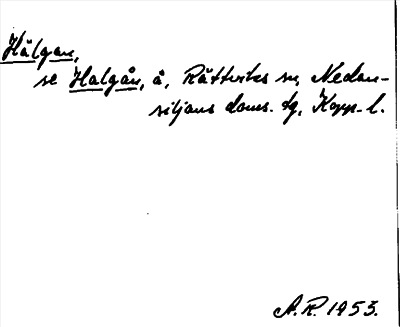 Hälgan,
se Halgån, å, Rättviks sn, Nedan-
siljans doms. tg, Kopp. l.
A.R. 1953.